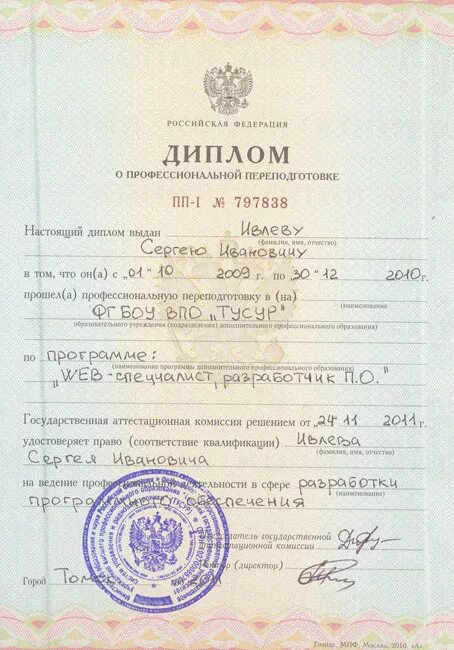 РОССИЙСКАЯ ФЕДЕРАЦИЯ
ДИПЛОМ
О ПРОФЕССИОНАЛЬНОЙ ПЕРЕПОДГОТОВКЕ
ПП-I № 797838
Настоящий диплом выдан Ивлеву
(фамилия, имя, отчество)
Сергею Ивановичу
в том, что он(а) с „01“ 10 2009 г. по 30 " 12 2010 г.
прошел(а) профессиональную переподготовку в (на)
(наименование
ФГБОУ ВПО „ТУСУР"
образовательного учреждения (подразделения) дополнительного профессионального образования)
по программе:
(наименование программы дополнительного профессионального образования)
„WEB-специалист, разработчик П.О."
Государственная аттестационная комиссия решением от „24" 11 2011 г.
удостоверяет право (соответствие квалификации) Ивлева
(фамилия, имя, отчество)
Сергея Ивановича
на ведение профессиональной деятельности в сфере разработки
(наименование)
программного обеспечения
Председатель государственной
аттестационной комиссии
Ректор (директор)
Город Томск
Гознак. МПФ. Москва. 2010. «А».